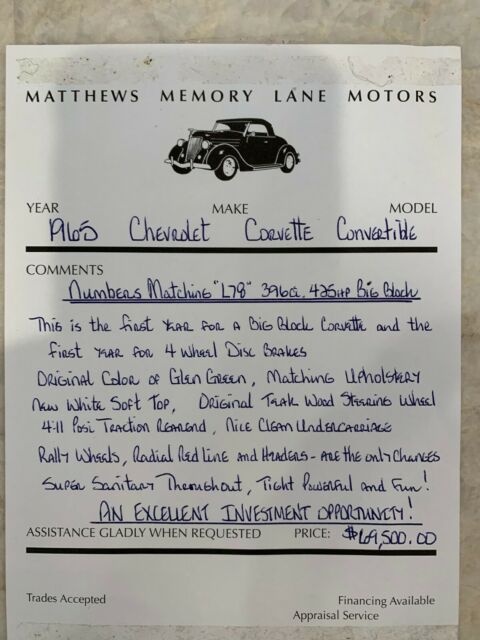 MATTHEWS MEMORY LANE MOTORS
YEAR MAKE MODEL
1965 Chevrolet Corvette Convertible
COMMENTS
Numbers Matching "L78" 396ci. 425HP Big Block
This is the first year for a Big Block Corvette and the
first year for 4 Wheel Disc Brakes
Original Color of Glen Green, Matching Upholstery
New White Soft Top, Original Teak Wood Steering Wheel
4:11 Posi Traction Rearend, Nice Clean Undercarriage
Rally Wheels, Radial Redline and Headers - are the only Changes
Super Sanitary Throughout, Tight Powerful and Fun!
AN EXCELLENT INVESTMENT OPPORTUNITY!
ASSISTANCE GLADLY WHEN REQUESTED PRICE: $69,500.00
Trades Accepted Financing Available
Appraisal Service